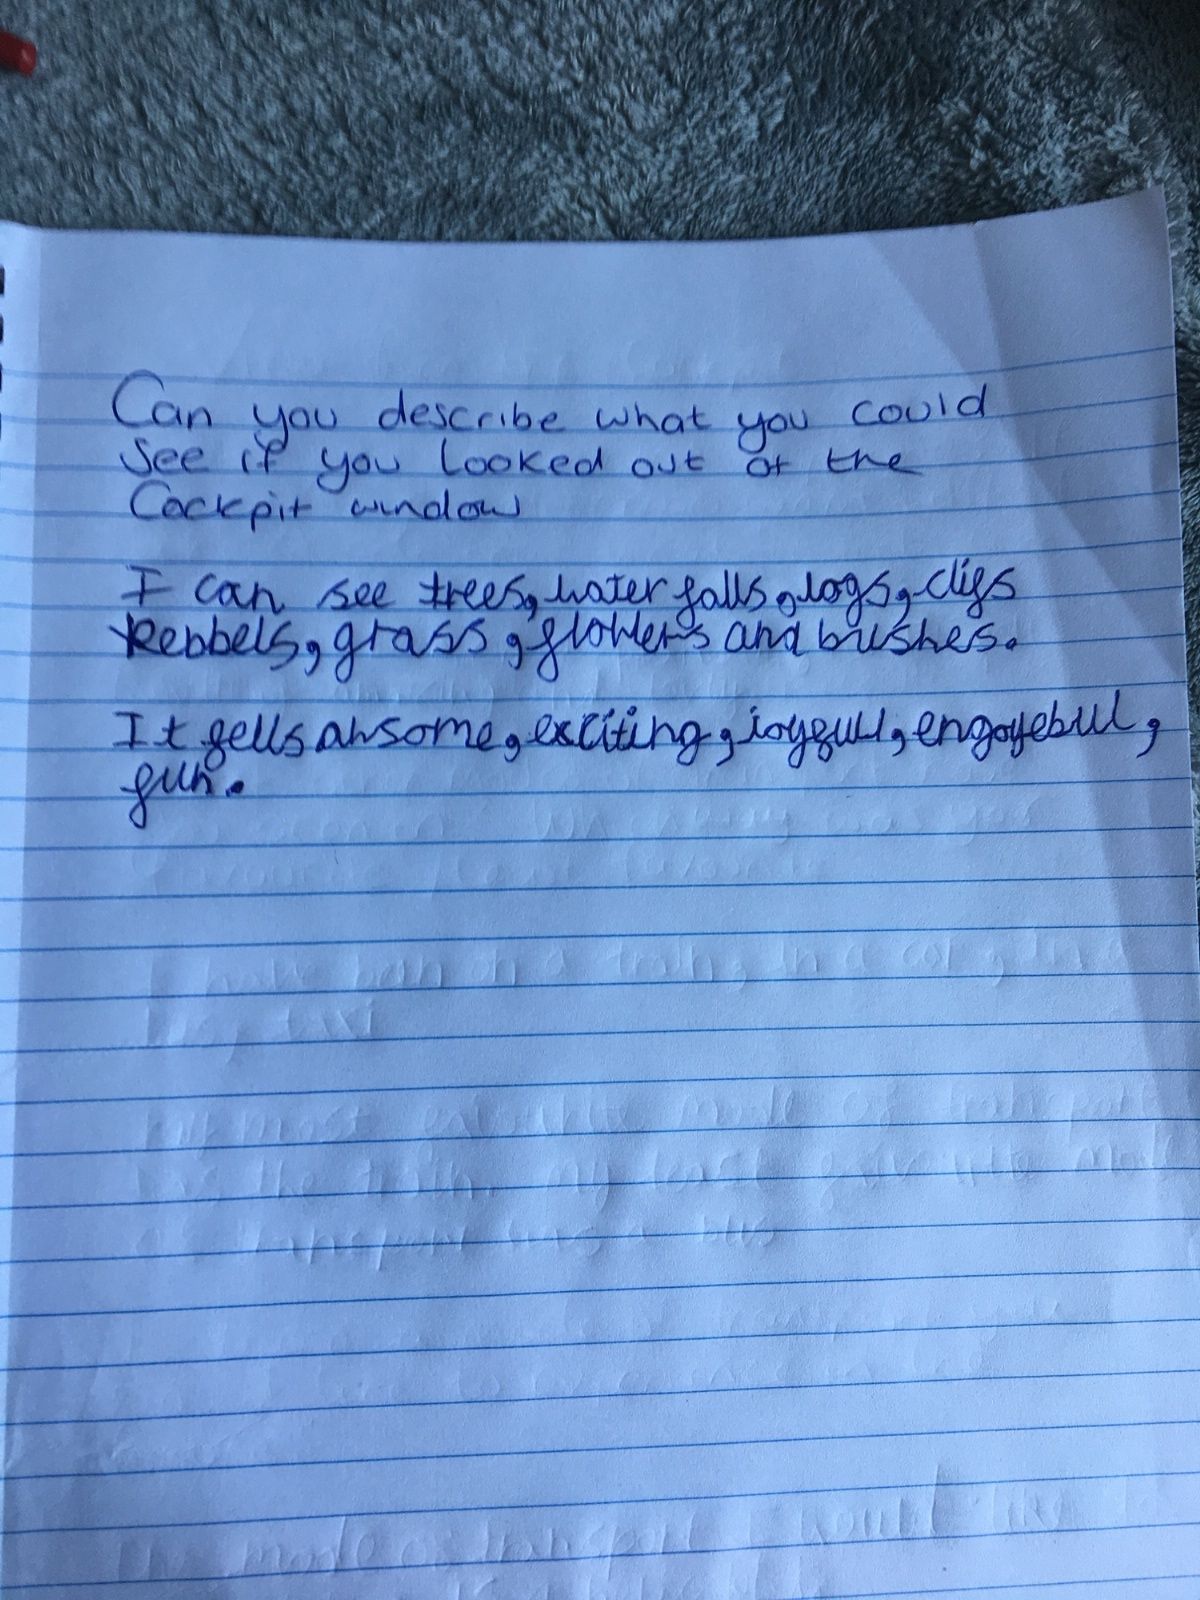 Can you describe what you could
see if you looked out of the
Cockpit window
I can see trees, water falls, logs, clifs
Pebbels, grass, flowers and bushes.
It fells awsome, exciting, joyfull, engoyebul,
fun.